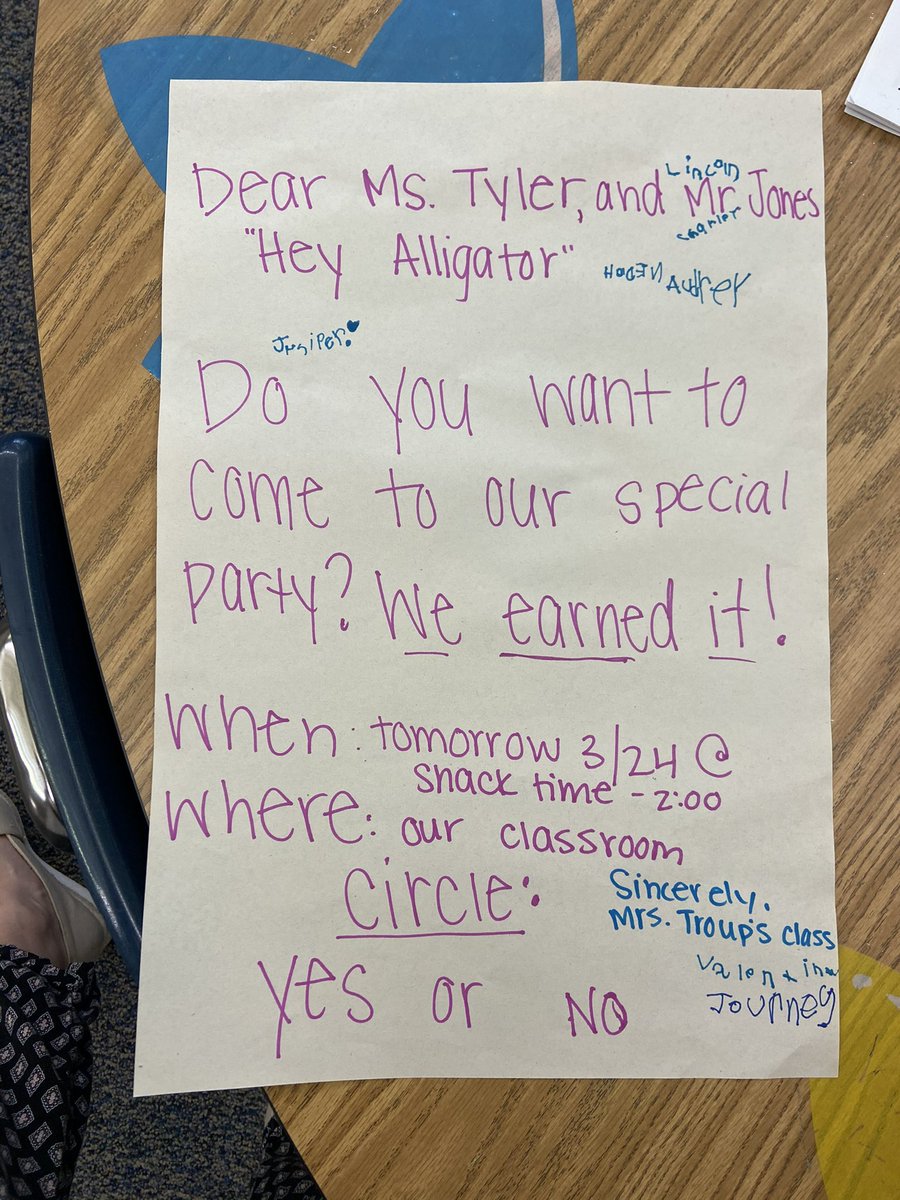 Lincoln
Dear Ms. Tyler, and Mr. Jones
Charlie
"Hey Alligator"
HaDEN Audrey
Juniper
Do you want to
come to our special
party? We earned it!
When: tomorrow 3/24 @
snack time - 2:00
Where: our classroom
Circle:
Sincerely,
Mrs. Troup's class
Yes or No
Valentina
Journey